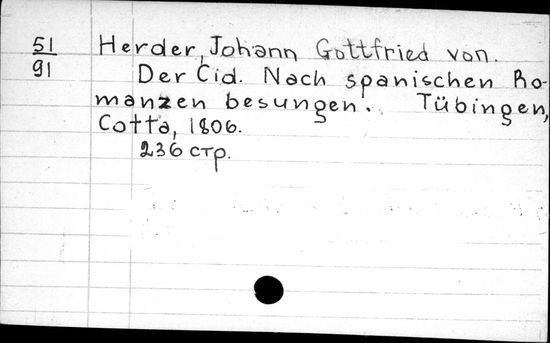 51 Herder, Johann Gottfried von.
91 Der Cid. Nach spanischen Ro-
manzen besungen. Tübingen,
Cotta, 1806.
236 стр.